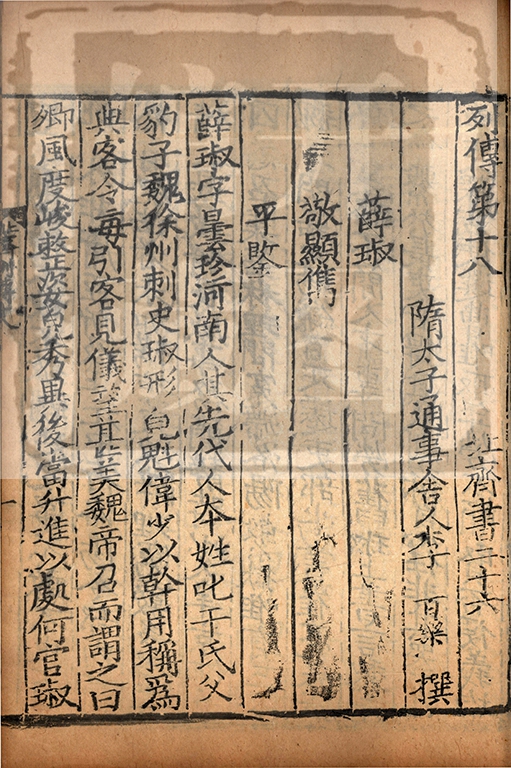 列傳第十八 北齊書二十六
隋太子通事舍人李 百樂 撰
薛琡
敬顯儁
平鑒
薛琡字曇珍河南人其先代人本姓叱干氏父
豹子魏徐州刺史琡形皃魁偉少以幹用稱爲
典客令每引客見儀望甚美魏帝召而謂之曰
卿風度峻整姿皃秀異後當升進以處何官琡